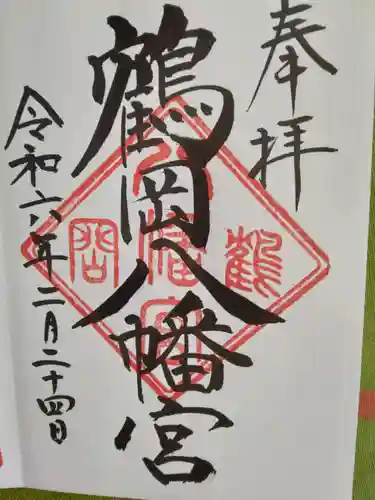 奉拝
鶴岡八幡宮
令和六年二月二十四日
鶴
岡
八幡宮